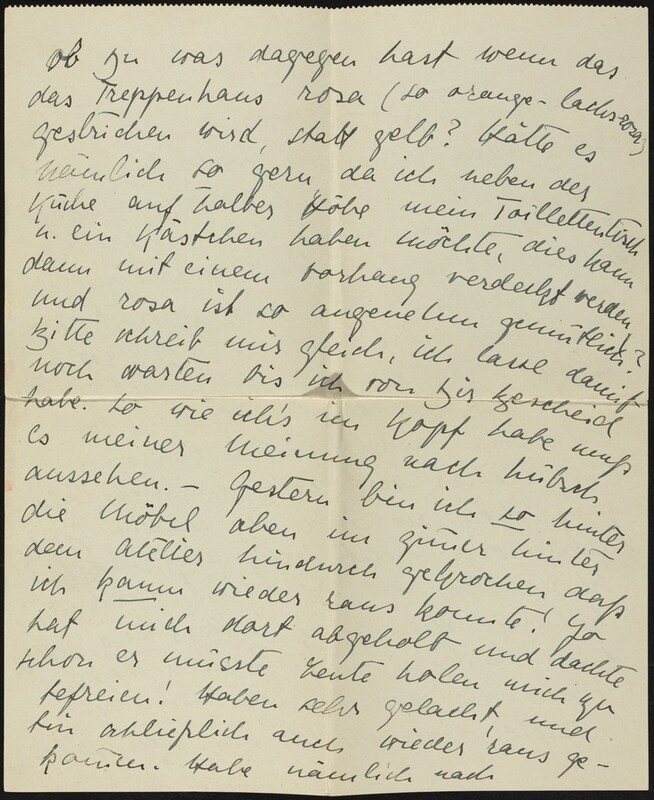 ob Du was dagegen hast wenn das
das Treppenhaus rosa (so orange-lachsrosa)
gestrichen wird, statt gelb? Hätte es
nämlich so gern da ich neben der
Küche auf halber Höhe mein Toillettentisch
u. ein Kästchen haben möchte, dies kann
dann mit einem Vorhang verdeckt werden
und rosa ist so angenehm gemütlich?
Bitte schreib mir gleich, ich lasse damit
noch warten bis ich von Dir Bescheid
habe. So wie ich's im Kopf habe muss
es meiner Meinung nach hübsch
aussehen. – Gestern bin ich so hinter
die Möbel oben im Zimmer hinter
dem Atelier hindurch gekrochen dass
ich kaum wieder raus konnte! Jo
hat mich dort abgeholt und dachte
schon er müsste Leute holen mich zu
befreien! Haben sehr gelacht, und
bin schlieplich auch wieder raus ge-
kommen. Habe nämlich nach